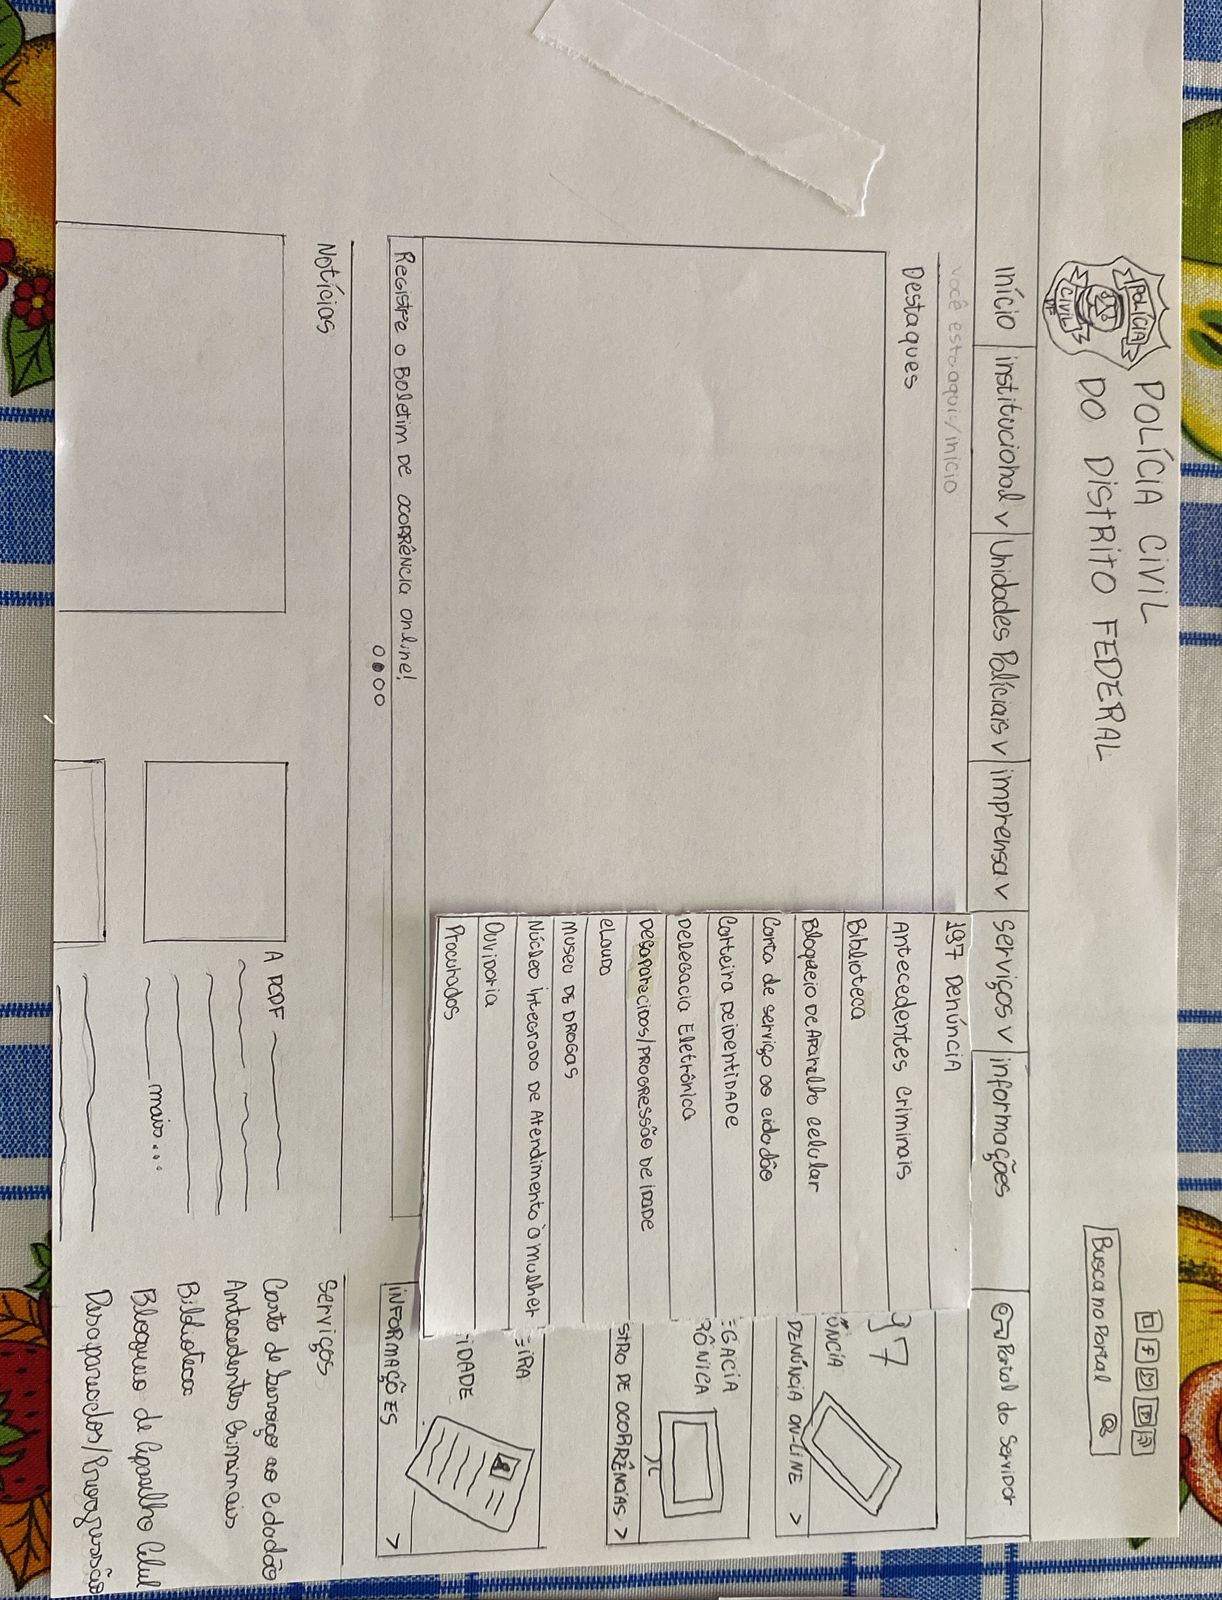 POLÍCIA
CIVIL
DF
POLÍCIA CIVIL
DO DISTRITO FEDERAL
Busca no Portal
início
institucional v
Unidades Políciais v
imprensa v
serviços v
informações
Portal do Servidor
você esta aqui:/início
Destaques
197 Denúncia
Antecedentes Criminais
Biblioteca
Bloqueio De Aparelho celular
Carta de serviço ao cidadão
Carteira De iDentiDADE
Delegacia Eletrônica
Desaparecidos/Progressão De iDADE
eLaudo
Museu DE DROGAS
Núcleo integrado De Atendimento à mulher
Ouvidoria
Procurados
97
ÚNCIA
DENÚNCIA ON-LINE >
EGACIA
RÔNICA
STRO DE OCORRÊNCIAS >
EIRA
TIDADE
INFORMAÇÕES >
Registre o Boletim De ocorrência online!
Notícias
A PCDF
mais...
Serviços
Carta de Serviço ao Cidadão
Antecedentes Criminais
Biblioteca
Bloqueio de Aparelho Celul
Desaparecidos/Progressão